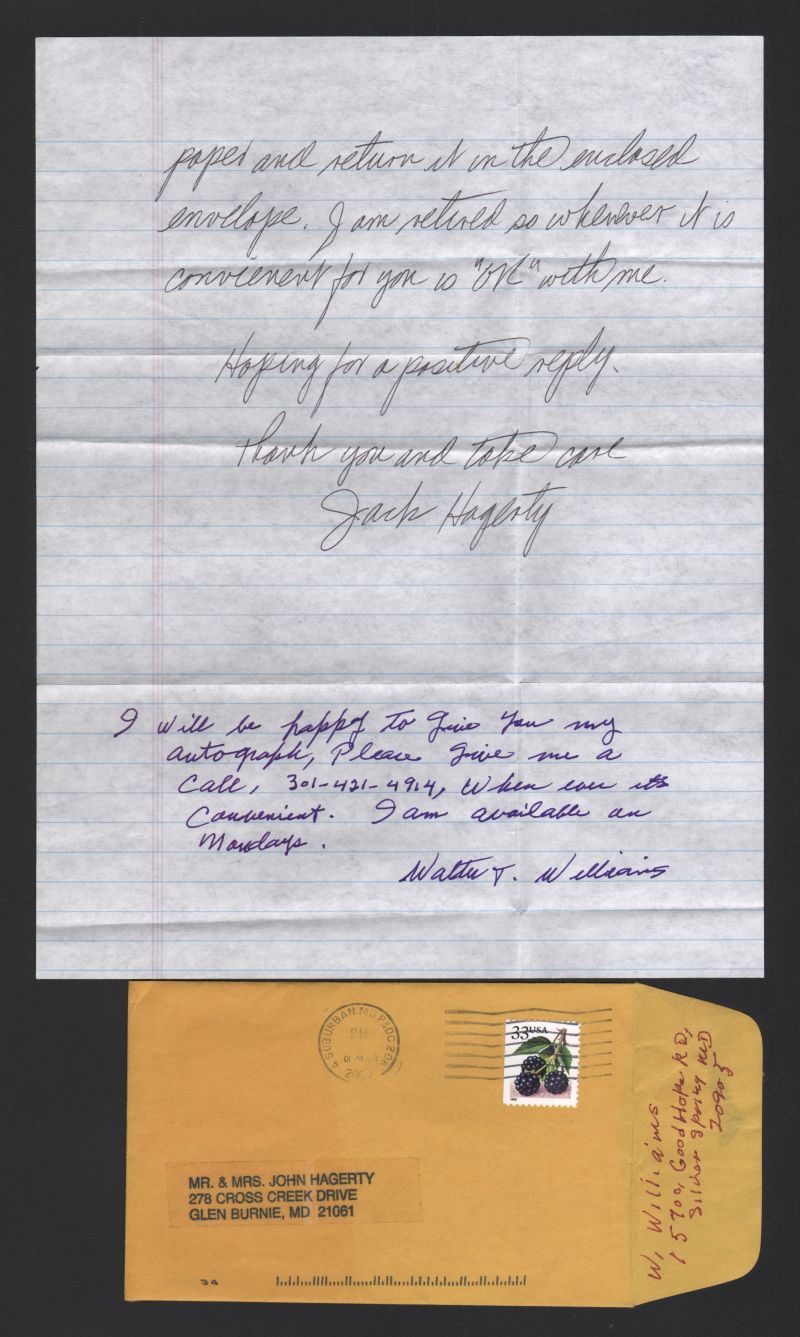 paper and return it in the enclosed
envelope. I am retired so whenever it is
convienent for you is "OK" with me.
Hoping for a positive reply.
Thank you and take care
Jack Hagerty
I will be happy to give you my
autograph, Please give me a
Call, 301-421-4914, When ever its
Convenient. I am available on
Mondays.
Walter T. Williams
SUBURBAN MD P&DC 208
PM
01 MAR
33 USA
MR. & MRS. JOHN HAGERTY
278 CROSS CREEK DRIVE
GLEN BURNIE, MD 21061
34
W. Williams
15700, Good Hope RD,
Silver Spring MD
20905